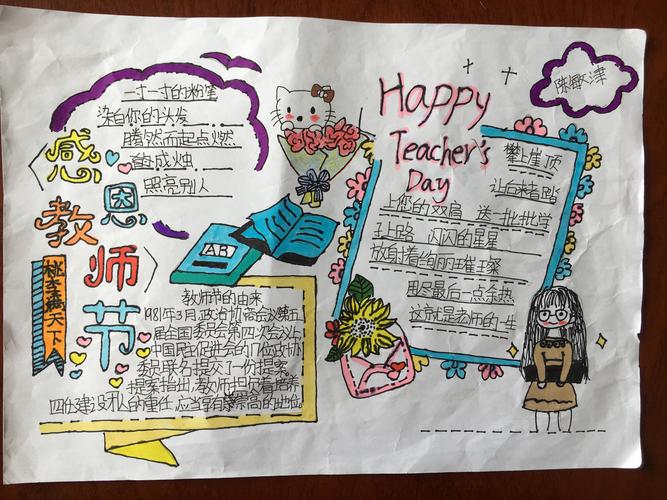 一寸一寸的粉笔
染白你的头发
腾然而起点燃
成烛
照亮别人
感恩
教师节
桃李满天下
AB
教师节的由来
1981年3月政治协商会议第五
届全国委员会第四次会议上
中国民主促进会的17位政协
委员联名提交了份提案
提案指出教师担负着培养
四化建设人的重任,应当享有崇高的地位
Happy
Teacher's
Day
陈敏
攀上崖顶
让后来者踏
上您的双肩 送一批批学
子上路 闪闪的星星
放射着绚丽璀璨
用尽最后一点余热
这就是老师的一生